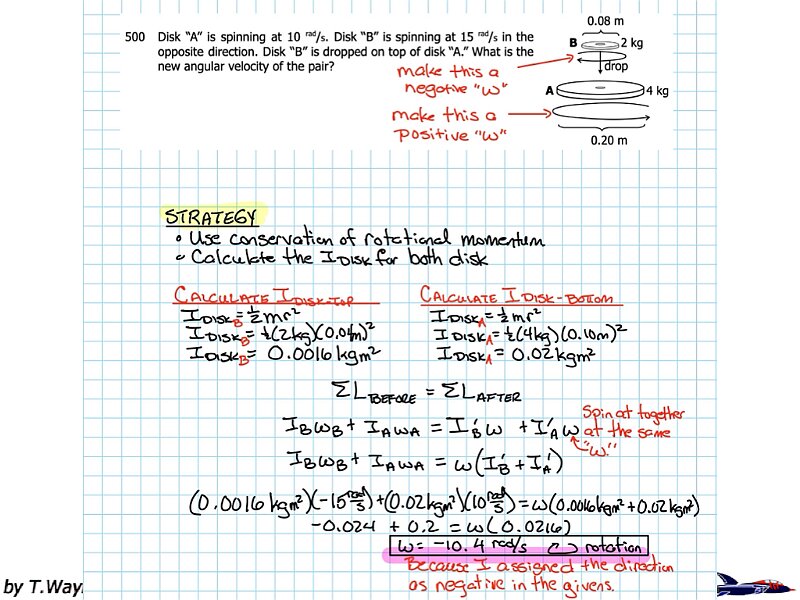 0.08 m
500 Disk “A” is spinning at 10 rad/s. Disk “B” is spinning at 15 rad/s in the
opposite direction. Disk “B” is dropped on top of disk “A.” What is the
new angular velocity of the pair?
B 2 kg
drop
make this a
negative "ω"
A 4 kg
make this a
positive "ω"
0.20 m
STRATEGY
• Use conservation of rotational momentum
• Calculate the I DISK for both disk
CALCULATE I DISK-TOP
I DISK B = ½mr²
I DISK B = ½(2kg)(0.04m)²
I DISK B = 0.0016 kgm²
CALCULATE I DISK-BOTTOM
I DISK A = ½mr²
I DISK A = ½(4kg)(0.10m)²
I DISK A = 0.02 kgm²
ΣL BEFORE = ΣL AFTER
I_Bω_B + I_Aω_A = I'_Bω + I'_Aω
Spin at together
at the same
"ω."
I_Bω_B + I_Aω_A = ω(I'_B + I'_A)
(0.0016 kgm²)(-15 rad/s) + (0.02 kgm²)(10 rad/s) = ω(0.0016 kgm² + 0.02 kgm²)
-0.024 + 0.2 = ω(0.0216)
ω = -10.4 rad/s rotation
Because I assigned the direction
as negative in the givens.
by T.Way